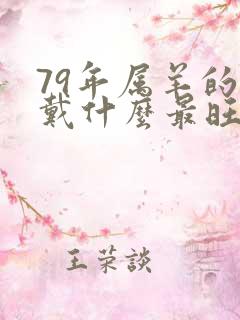 79年属羊的
戴什麼最旺
王荣談